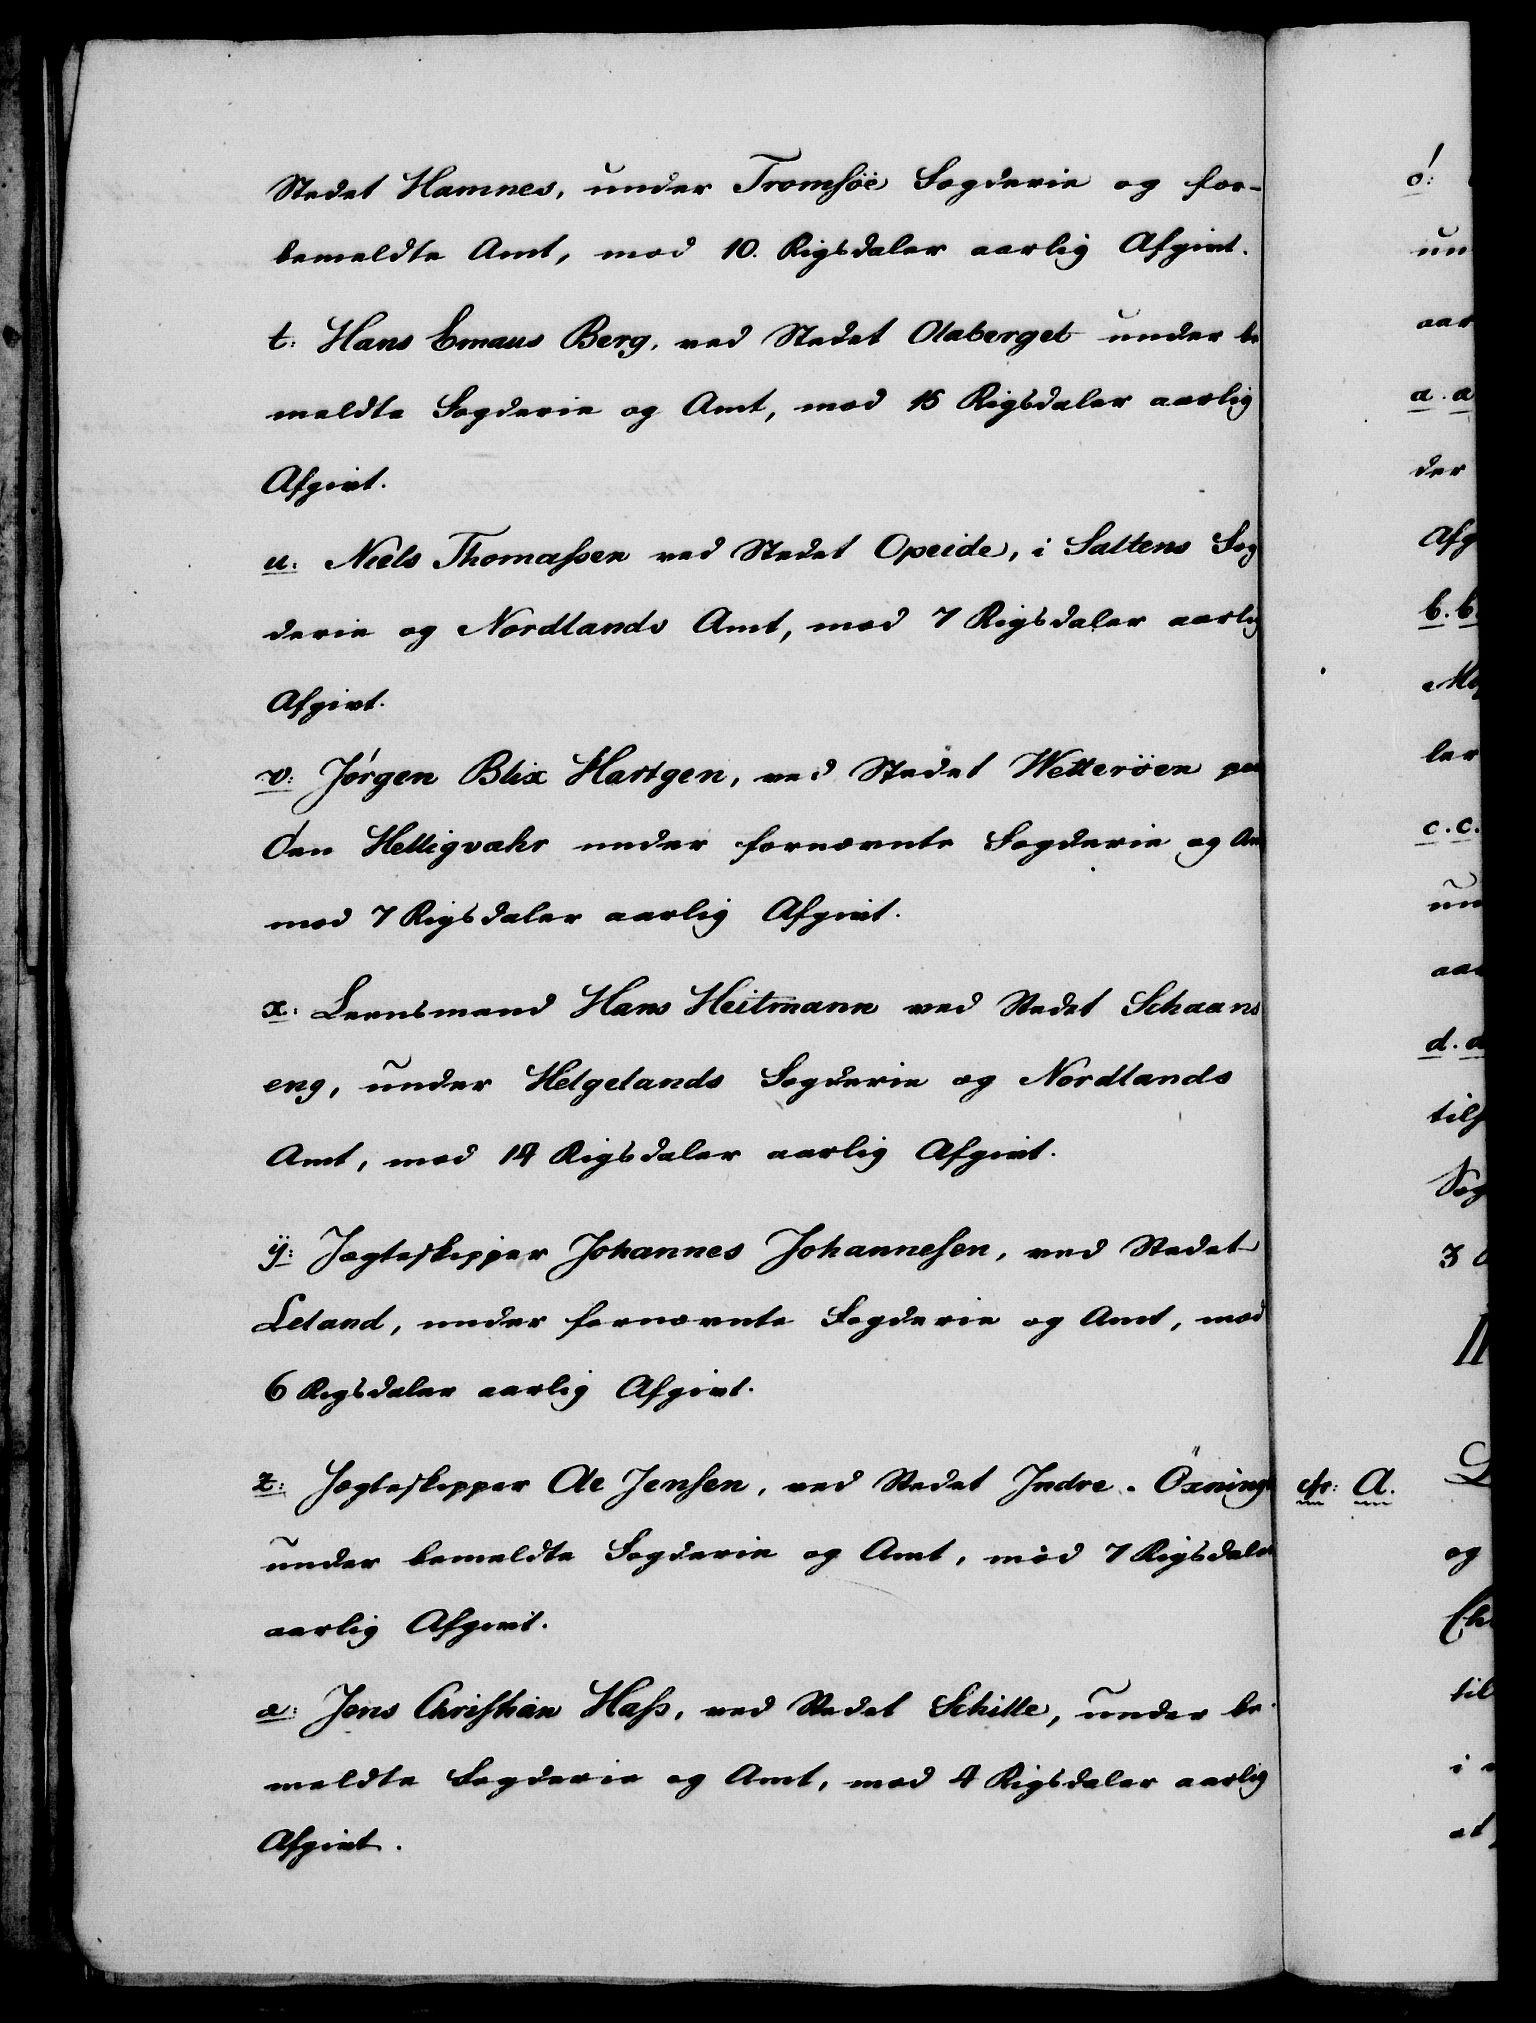 Stedet Hamnes, under Tromsöe Fogderie og for-
bemeldte Amt, mod 10. Rigsdaler aarlig Afgivt.
t: Hans Emaus Berg, ved Stedet Olaberget under be
meldte Fogderie og Amt, mod 15 Rigsdaler aarlig
Afgivt.
u: Niels Thomassen ved Stedet Opeide, i Saltens Fog
derie og Nordlands Amt, mod 7 Rigsdaler aarlig
Afgivt.
v: Jörgen Blix Hartgen, ved Stedet Wetteröen paa
Öen Helligvahr under fornævnte Fogderie og Am
mod 7 Rigsdaler aarlig Afgivt.
x: Leensmand Hans Heitmann ved Stedet Schaans
eng, under Helgelands Fogderie og Nordlands
Amt, mod 14 Rigsdaler aarlig Afgivt.
ÿ: Jægteskipper Johannes Johannesen, ved Stedet
Leland, under fornævnte Fogderie og Amt, mod
6 Rigsdaler aarlig Afgivt.
z: Jægteskipper Ole Jensen, ved Stedet Indre-Öxning
under bemeldte Fogderie og Amt, mod 7 Rigsdaler
aarlig Afgivt.
æ: Jens Christian Hass, ved Stedet Schille, under be-
meldte Fogderie og Amt, mod 4 Rigsdaler aarlig
Afgivt.
ö:
un
aar
a. a
der
Afg
b. b
ler
c. c.
un
aar
d. d
til
3
II
cfr: A.
og
til
i
at